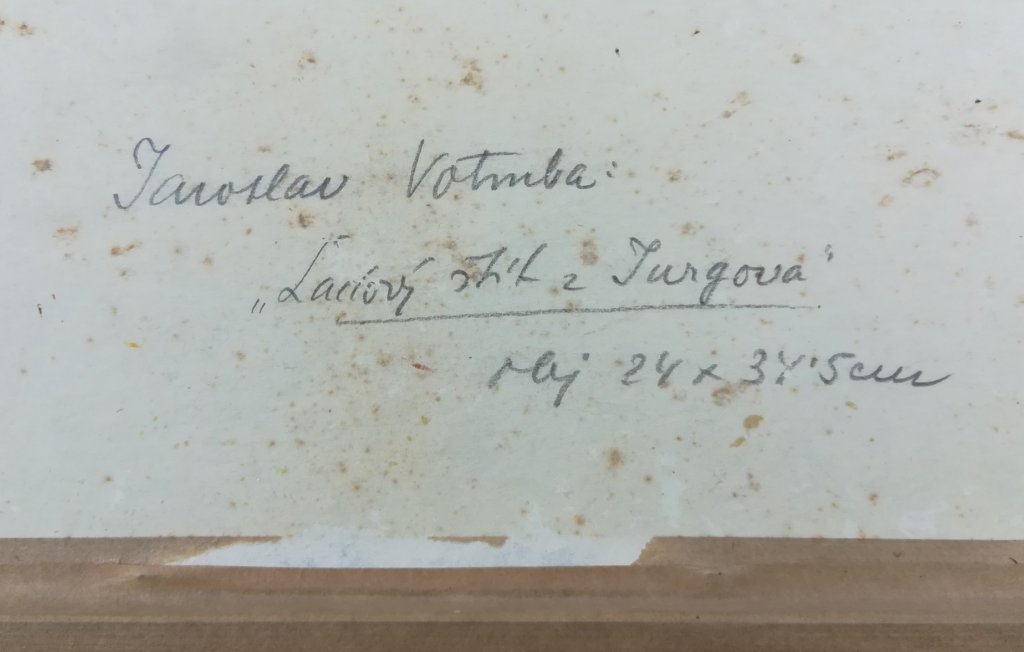 Jaroslav Votruba:
„Ľadový štít z Jurgova"
olej 24 x 34'5cm